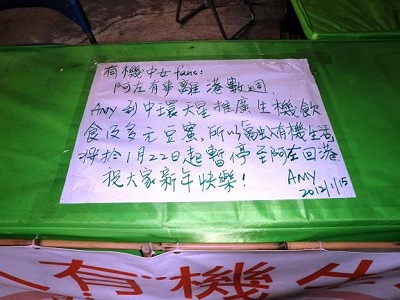 有機中女fans:
阿左有事離港數週.
Amy到中環大星推廣生機飲
食及多元豆窩，所以 有機生活
將於1月22日起暫停至阿左回港.
祝大家新年快樂!
AMY
2012/1/15
人有機生